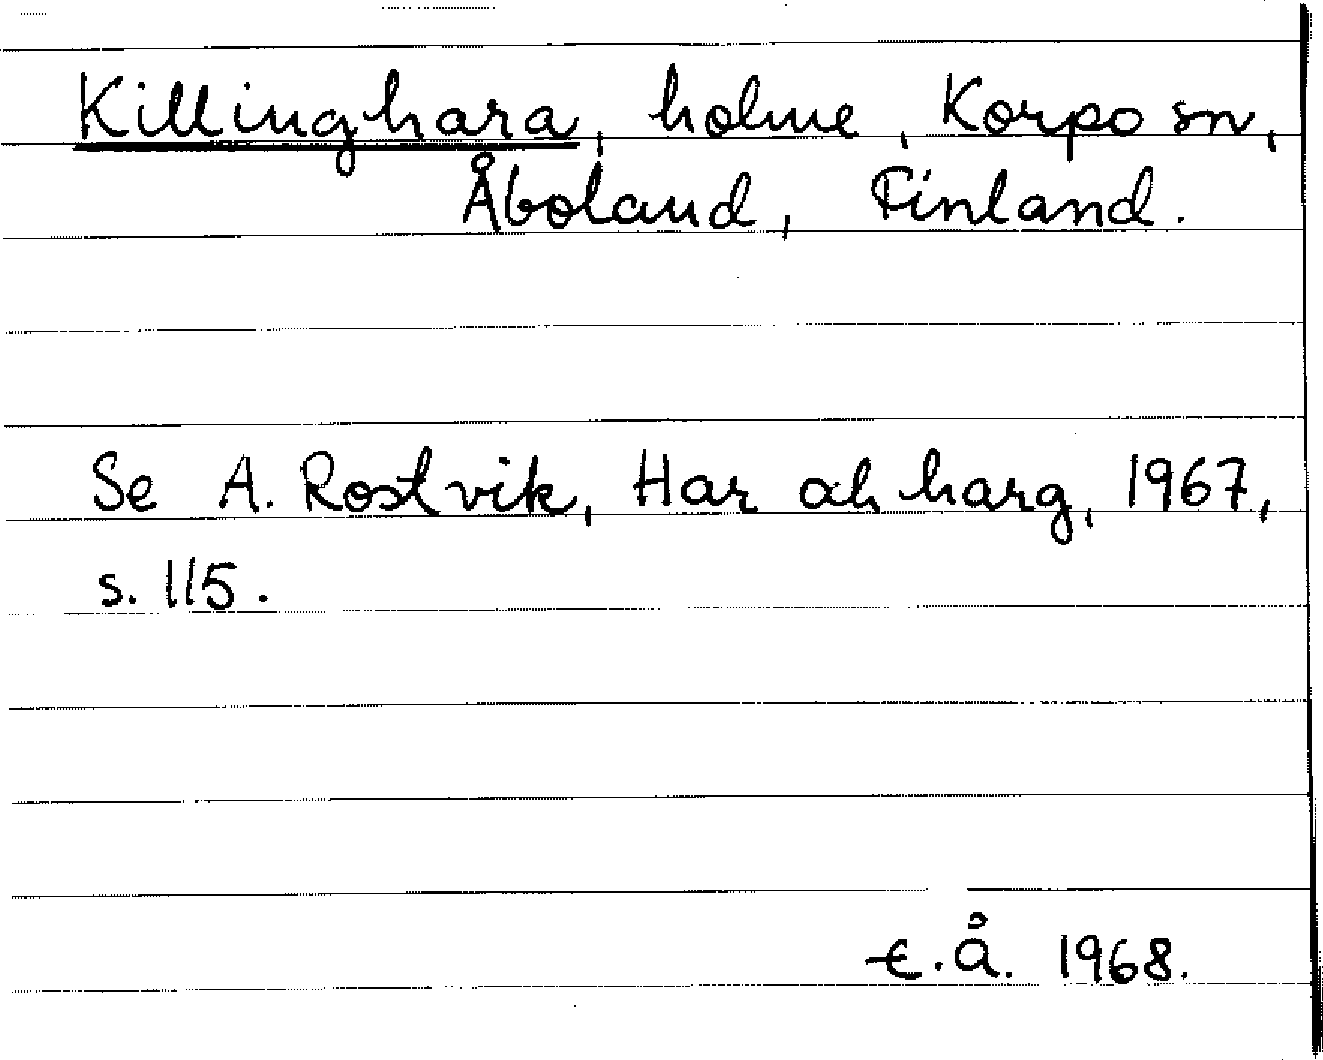 Killinghara, holme, Korpo sn,
Åboland, Finland.
Se A. Rostvik, Har och harg, 1967,
s. 115.
E.Å. 1968.